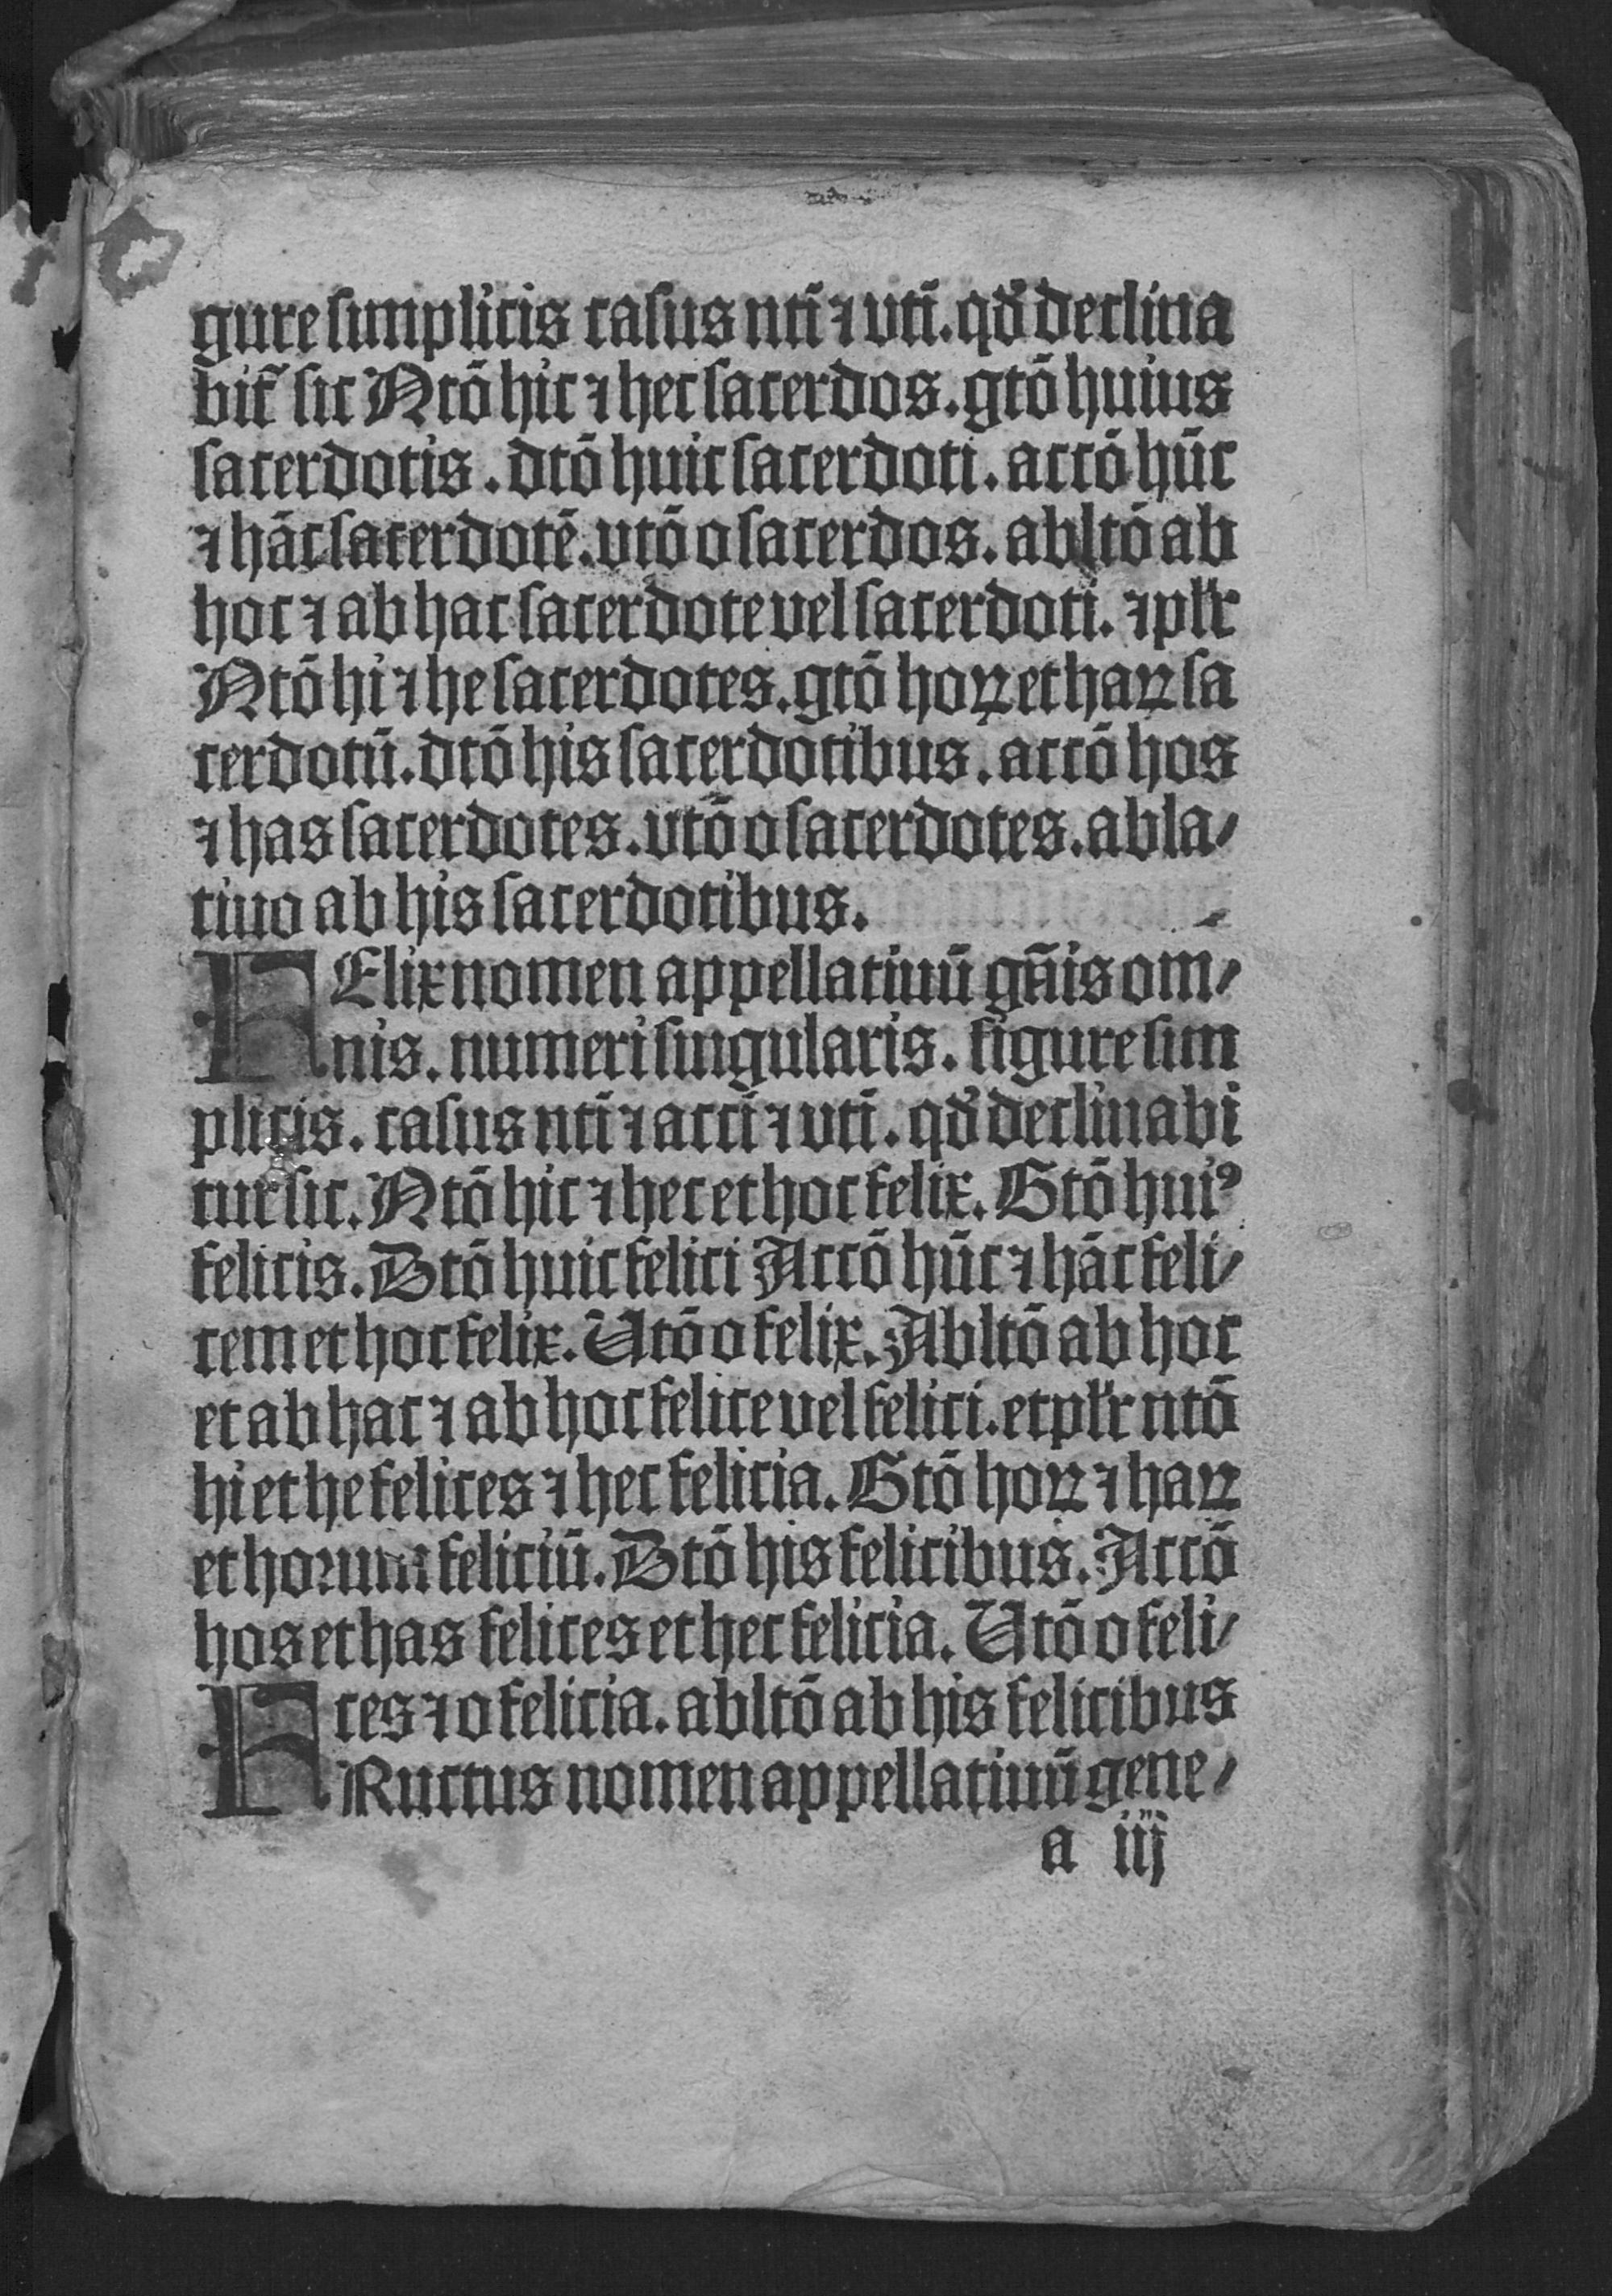 gure simplicis casus nti ⁊ vti. qd̛ declina
bit᷑ sic Ntō hic ⁊ hec sacerdos. gtō huius
sacerdotis. dtō huic sacerdoti. accō hūc
⁊ hāc sacerdotē. vtō o sacerdos. abltō ab
hoc ⁊ ab hac sacerdote vel sacerdoti. ⁊ plr̛
Ntō hi ⁊ he sacerdotes. gtō hoꝝ et haꝝ sa
cerdotū. dtō his sacerdotibus. accō hos
⁊ has sacerdotes. vtō o sacerdotes. abla/
tiuo ab his sacerdotibus.
FElix nomen appellatiuū gn̄is om/
nis. numeri singularis. figure sim
plicis. casus nti ⁊ acci ⁊ vti. qd̛ declinabi
tur sic. Ntō hic ⁊ hec et hoc felix. Gtō huiꝰ
felicis. Dtō huic felici Accō hūc ⁊ hāc feli/
cem et hoc felix. Utō o felix. Abltō ab hoc
et ab hac ⁊ ab hoc felice vel felici. et plr̛ ntō
hi et he felices ⁊ hec felicia. Gtō hoꝝ ⁊ haꝝ
et horum feliciū. Dtō his felicibus. Accō
hos et has felices et hec felicia. Utō o feli/
ces ⁊ o felicia. abltō ab his felicibus
FRuctus nomen appellatiuū gene/
a iij